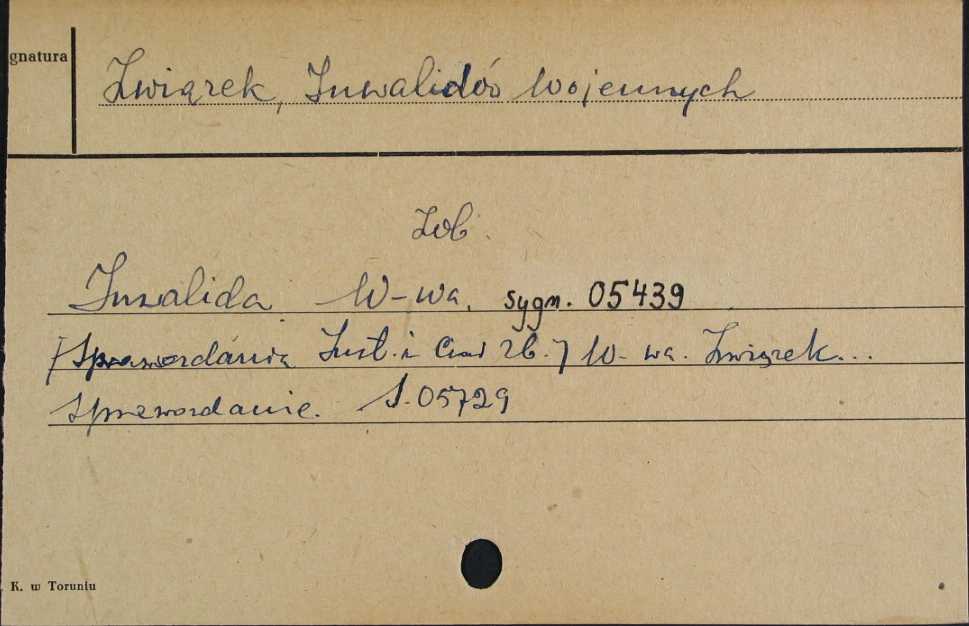 gnatura
Związek, Inwalidów Wojennych
Zob.
Inwalida W-wa, sygn. 05439
[Sprawozdania Inst. i Ciał zb.] W-wa. Związek...
Sprawozdanie. S.05729
K. w Toruniu